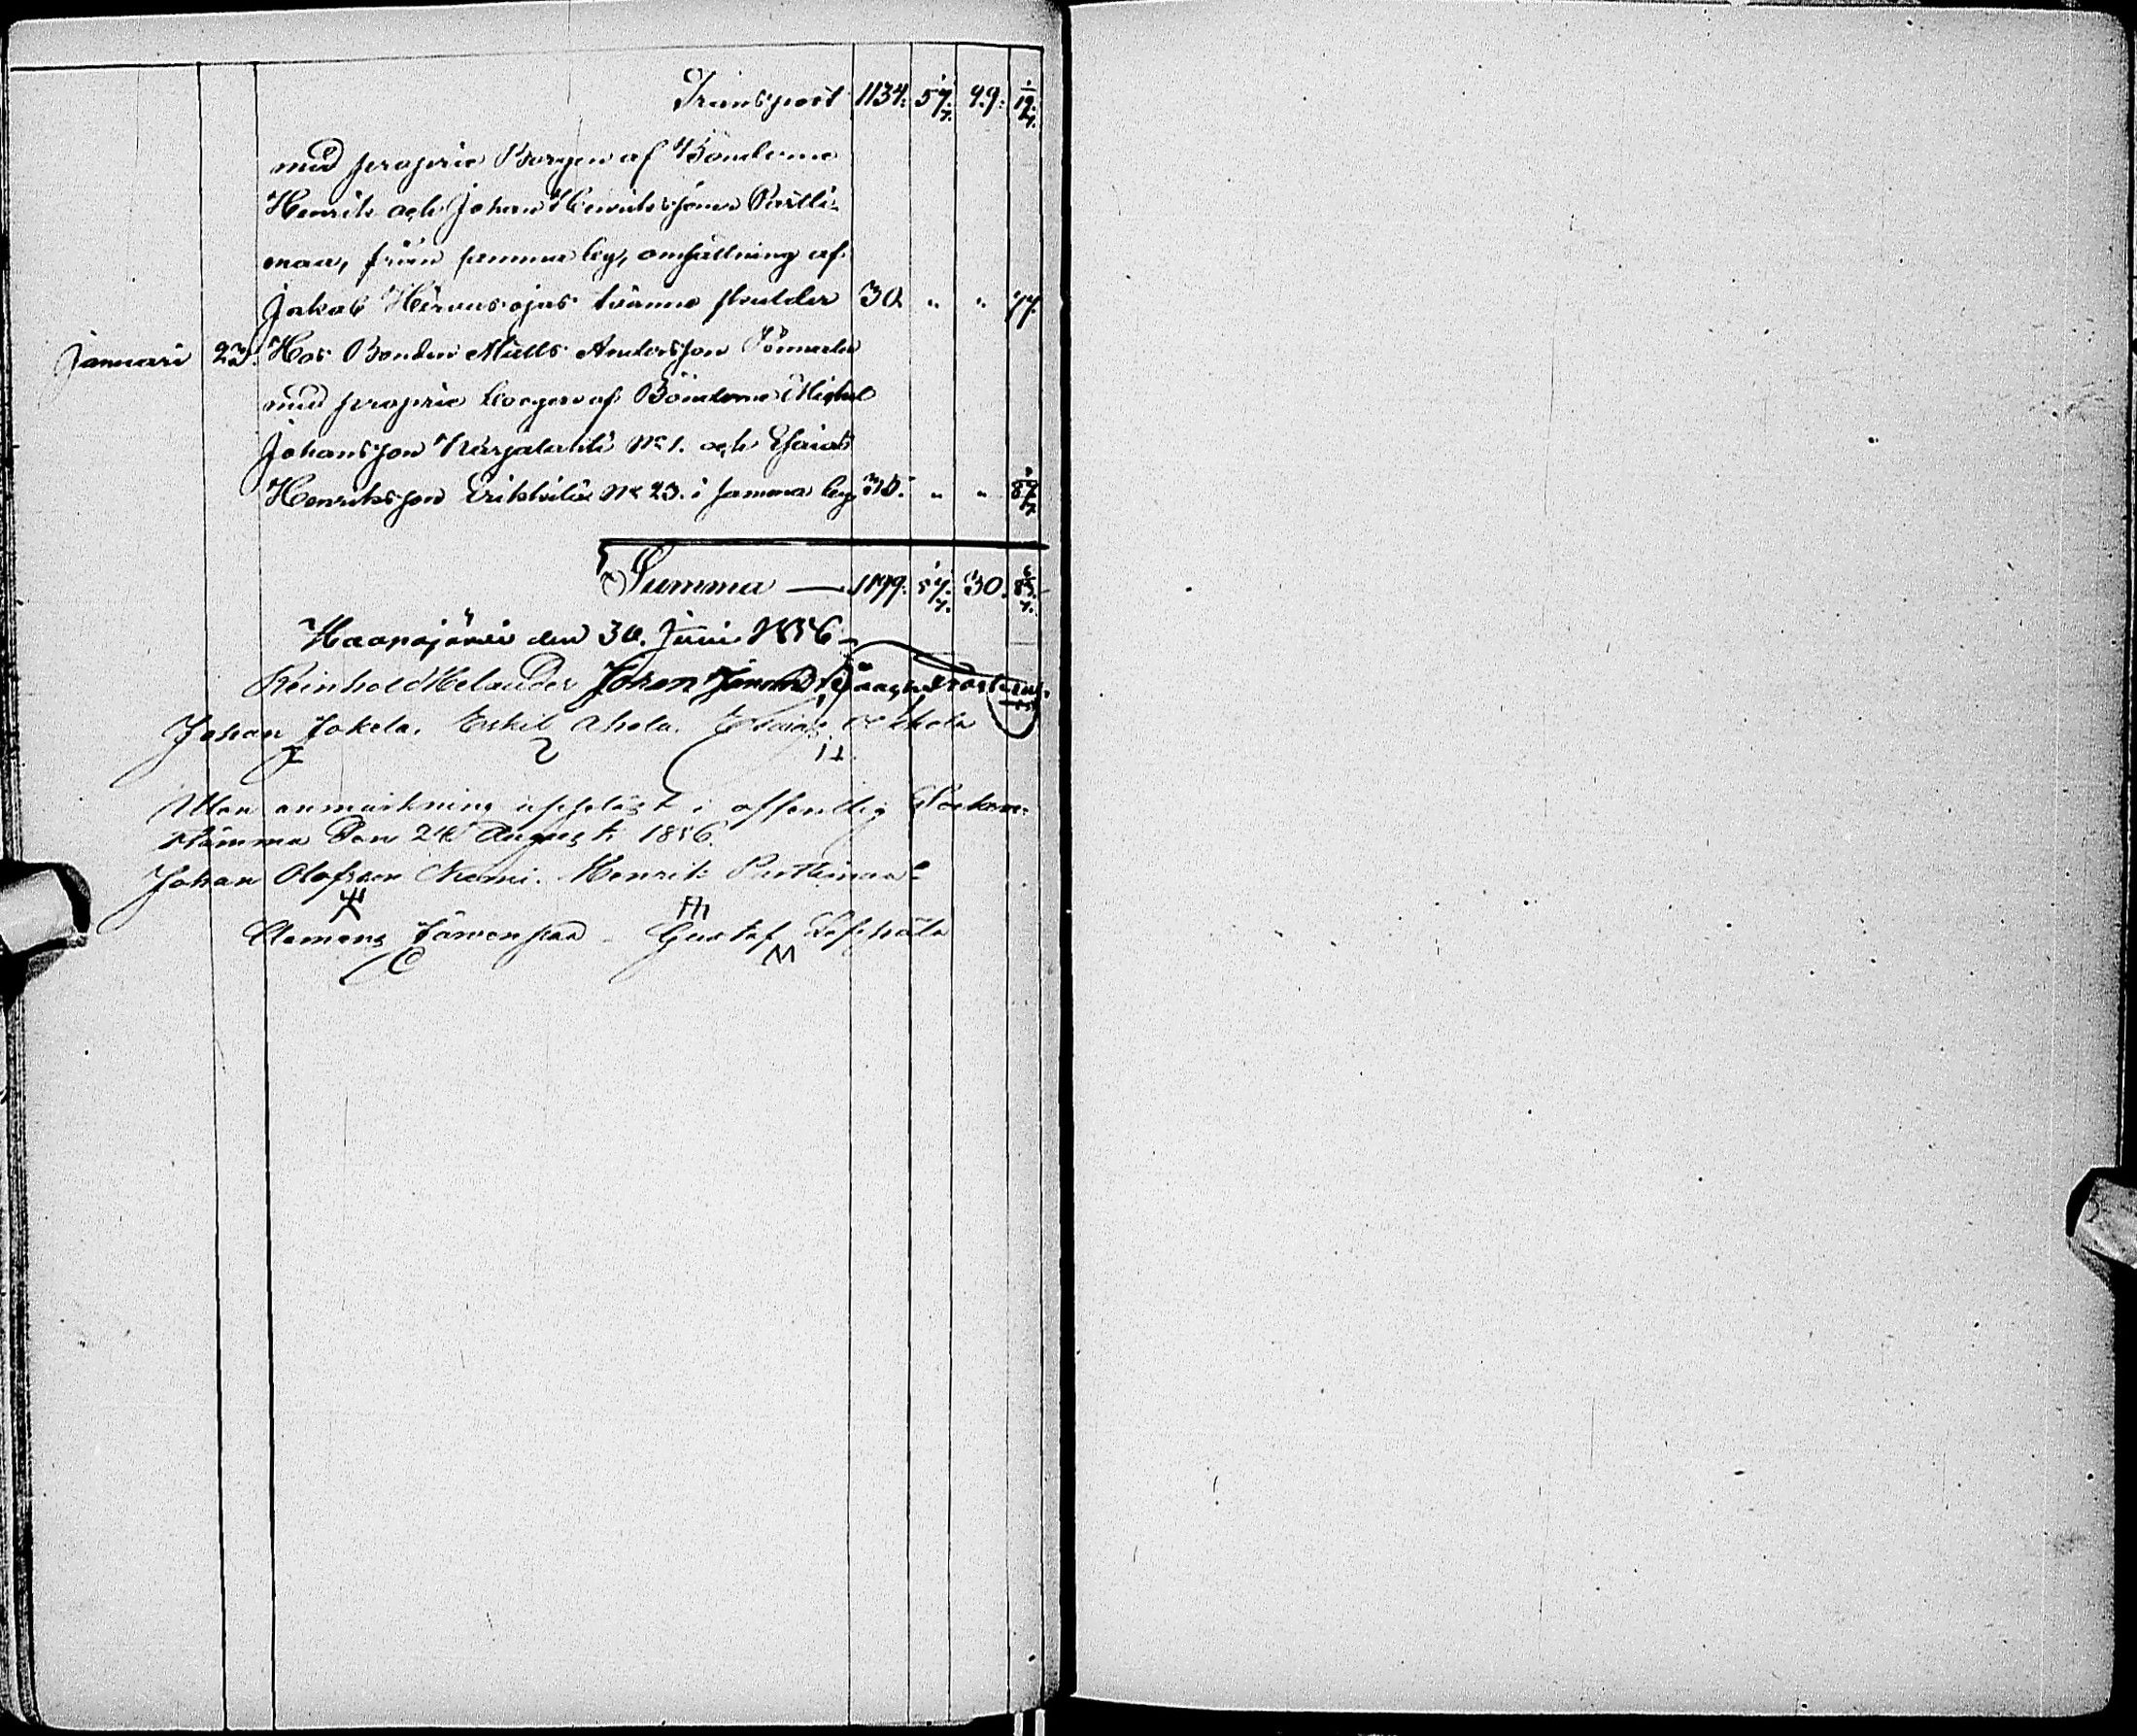 Transport 1134. 57 1/7. 49. 19 1/7.
med proprie Borgen af Bönderne
Henrik och Johan Henrikssöner Puttli-
maa, från samma by, omsättning af
Jakob Hirvasojas tvänne skulder 30 " " 77.
Januari 23. Hos Bonden Matts Andersson
med proprie borgen af Bönderne Michel
Johansson Karjalahti No 1. och Esaias
Henriksson Erikkilä No 23. i samma by 35. " "
Summa — 1199. 57 1/7. 30.
Haapajärvi den 30. Juni 1856
Reinhold Helander Johan
Johan Jokela. Eskil Ahola. Esaias
Utan anmärkning uppläst i offentlig Socken-
stämma Den 24 Augusti 1856.
Johan Olofsson Niemi. Henrik Puttimaa
Clemens Järvenpää Gustaf